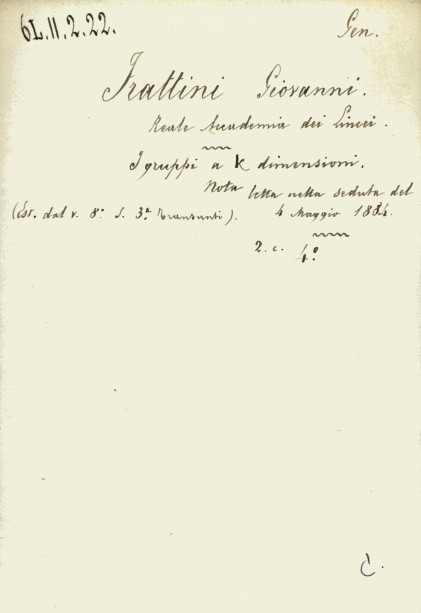 6L.11.2.22.
Gen.
Frattini Giovanni.
Reale Accademia dei Lincei.
I gruppi a k dimensioni.
Nota letta nella seduta del
(Est. dal v. 8.° S. 3.ª Transunti). 4 Maggio 1884.
2. c. 4.°
C.